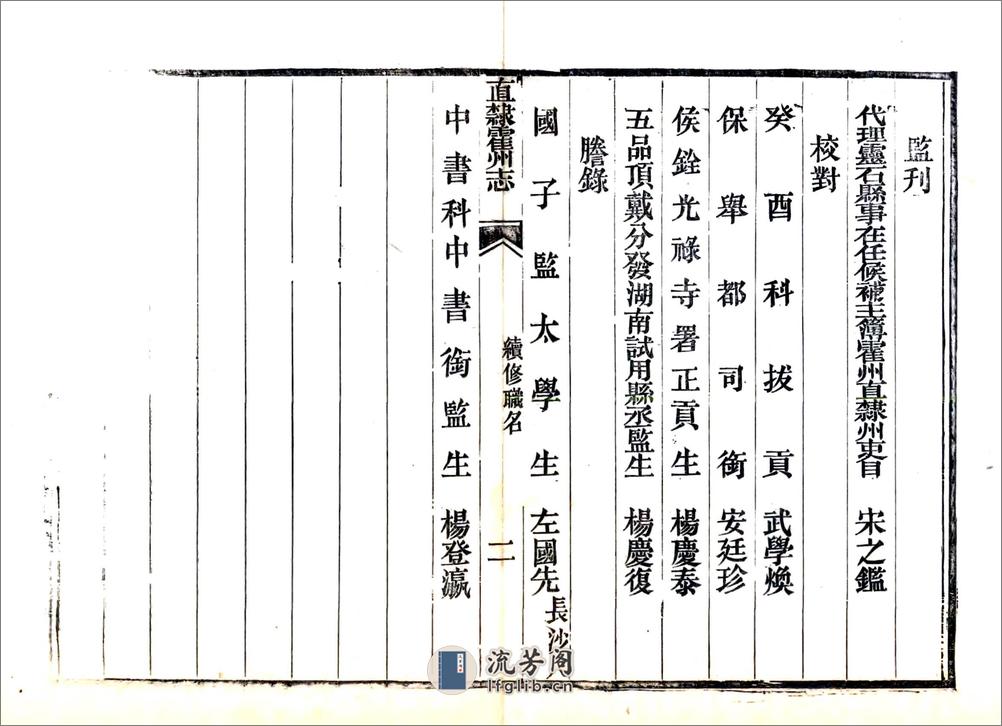 監刊
代理靈石縣事在任候補主簿霍州直隸州吏目 宋之鑑
校對
癸酉科拔貢 武學煥
保舉都司銜 安廷珍
侯銓光祿寺署正貢生 楊慶泰
五品頂戴分發湖南試用縣丞監生 楊慶復
謄錄
國子監太學生 左國先 長沙人
直隸霍州志 續修職名 二
中書科中書銜監生 楊登瀛
流芳阁
lfglib.cn